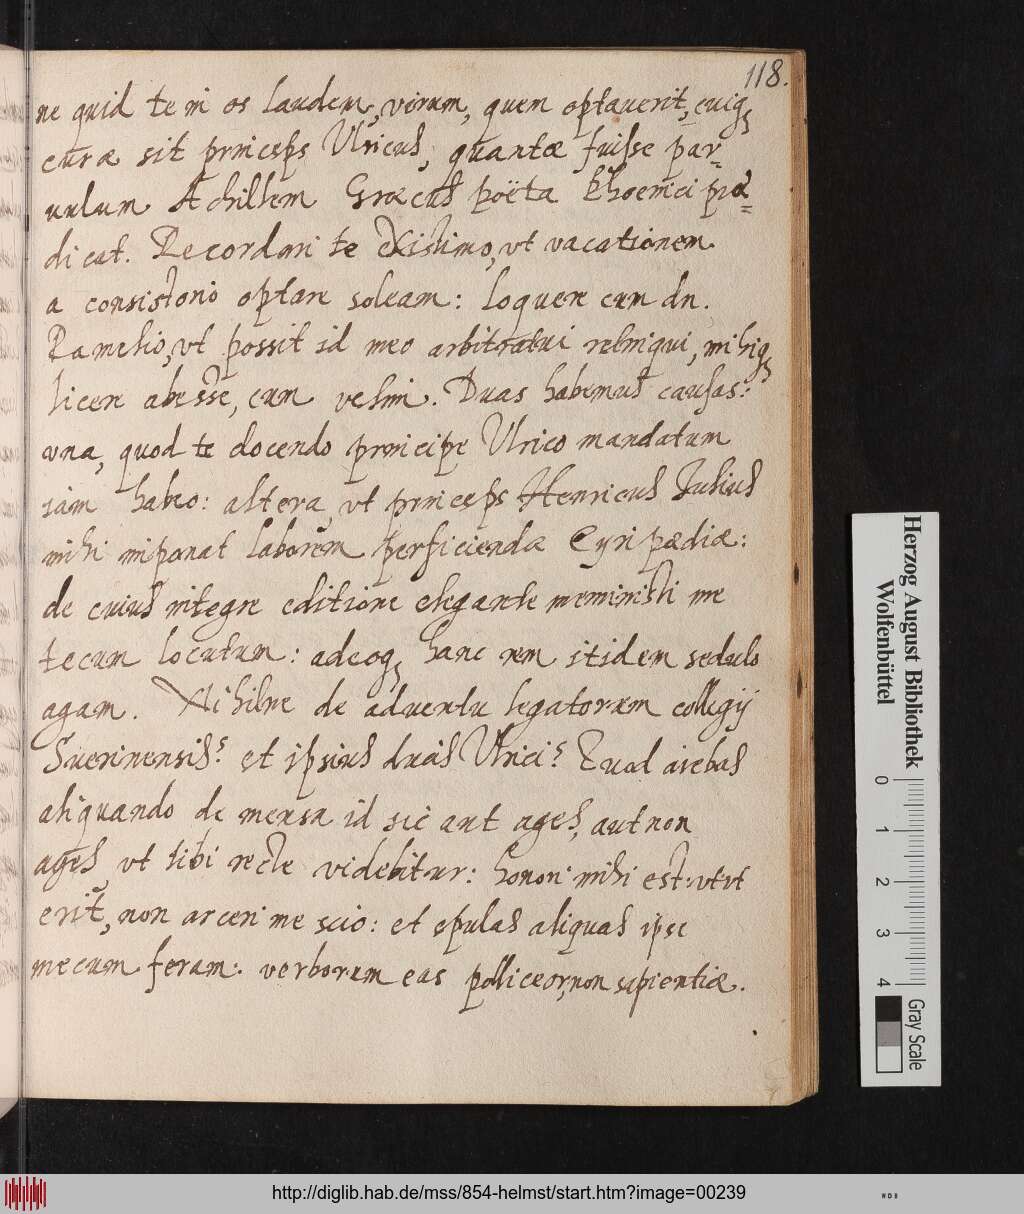 118.
ne quid te in os laudem, virum, quem optauerit, cuiq;
curæ sit princeps Ulricus, quantæ fuisse par-
uulum Achillem Græcus poëta Phoenici præ=
dicat. Recordari te existimo, vt vacationem
a consistorio optare soleam: loquere cum dn.
Ramelio, vt possit id meo arbitratui relinqui, mihiq;
licere abesse, cum velim. Duas habemus causas:
vna, quod te docendo principe Ulrico mandatum
iam habeo: altera, vt princeps Henricus Julius
mihi imponat laborem perficiendæ Cyripædiæ:
de cuius integre editione elegante meministi me
tecum locutum: adeoq; hanc rem itidem sedulo
agam. Nihilne de aduentu legatorum collegij
Suerinensis? et ipsius ducis Ulrici? Quod aiebas
aliquando de mensa id sic aut ages, aut non
ages, vt tibi recte videbitur: honori mihi est: vtut
erit, non arceri me scio: et epulas aliquas ipse
mecum feram: verborum eas polliceor, non sapientiæ.
Herzog August Bibliothek
Wolfenbüttel
0 1 2 3 4
Gray Scale
http://diglib.hab.de/mss/854-helmst/start.htm?image=00239